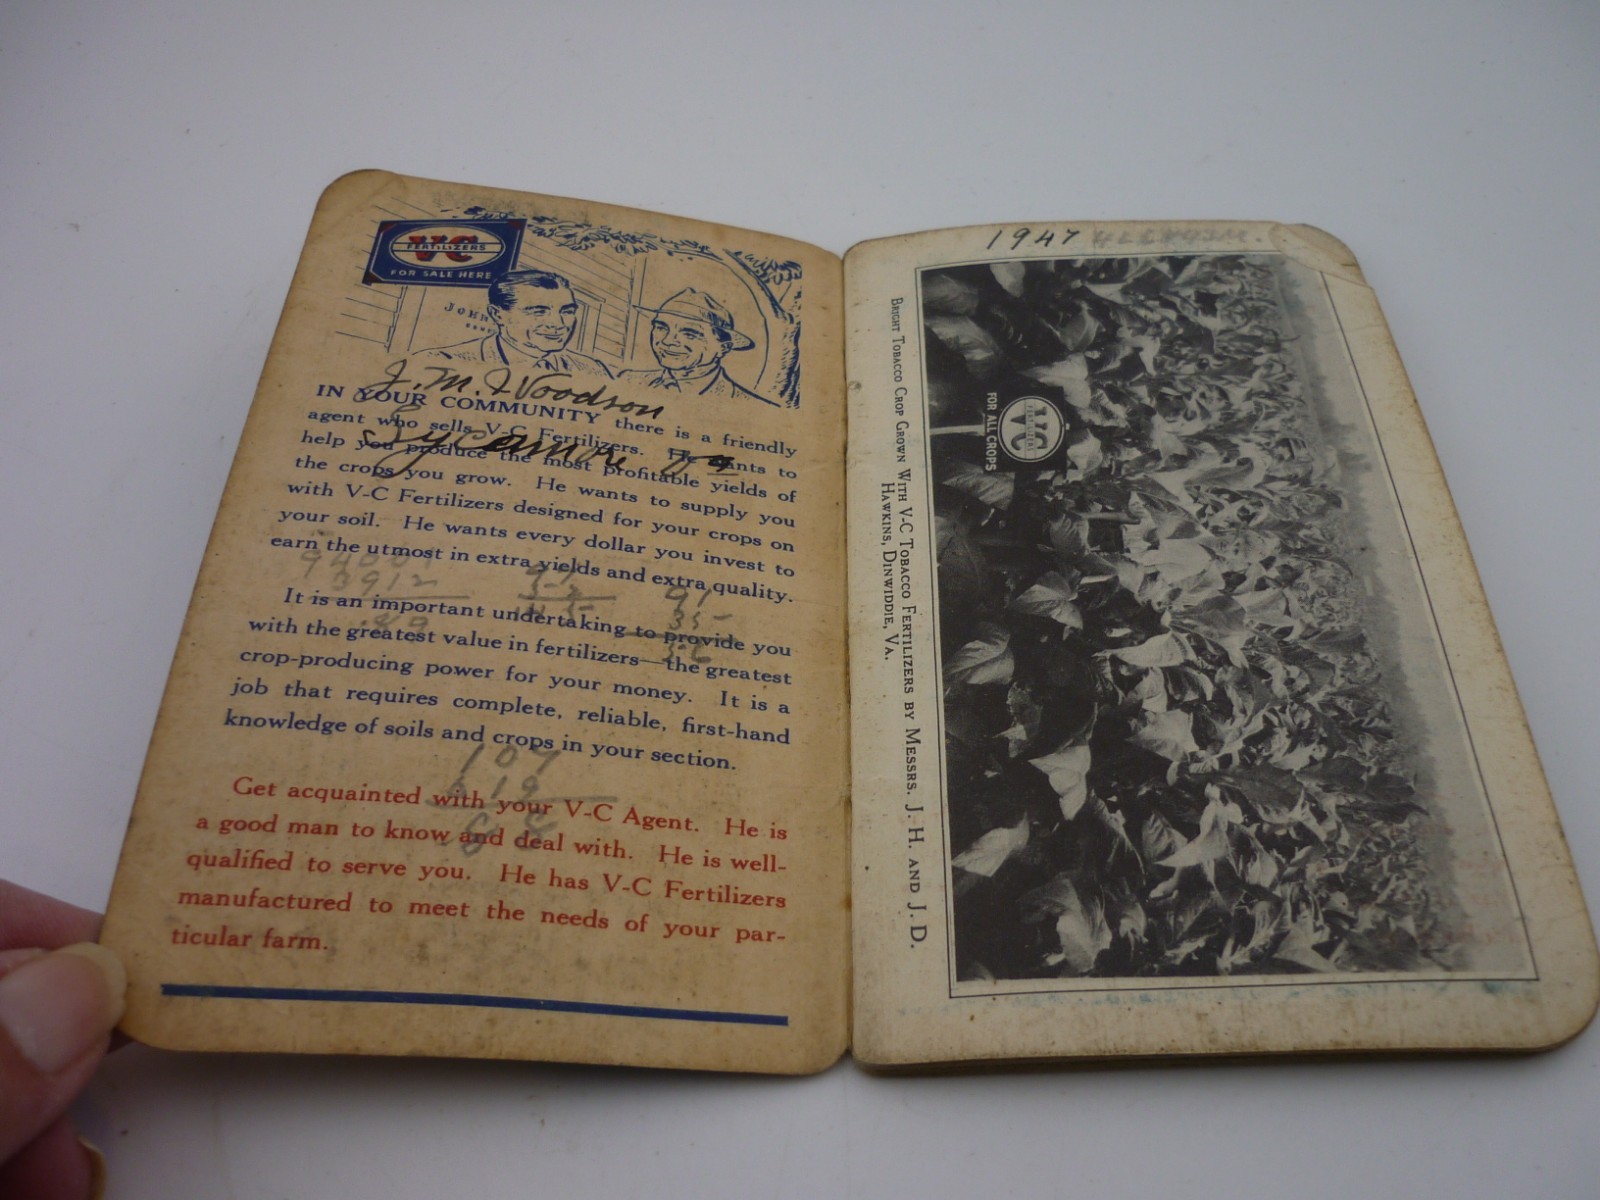 V-C
FERTILIZERS
FOR SALE HERE
JOHN
J. M. Woodson
IN YOUR COMMUNITY there is a friendly
Sycamore Va
agent who sells V-C Fertilizers. He wants to
help you produce the most profitable yields of
the crops you grow. He wants to supply you
with V-C Fertilizers designed for your crops on
your soil. He wants every dollar you invest to
earn the utmost in extra yields and extra quality.
3912
91
35
It is an important undertaking to provide you
with the greatest value in fertilizers—the greatest
crop-producing power for your money. It is a
job that requires complete, reliable, first-hand
knowledge of soils and crops in your section.
107
Get acquainted with your V-C Agent. He is
a good man to know and deal with. He is well-
qualified to serve you. He has V-C Fertilizers
manufactured to meet the needs of your par-
ticular farm.
1947
V-C
FERTILIZERS
FOR ALL CROPS
BRIGHT TOBACCO CROP GROWN WITH V-C TOBACCO FERTILIZERS BY MESSRS. J. H. AND J. D.
HAWKINS, DINWIDDIE, VA.